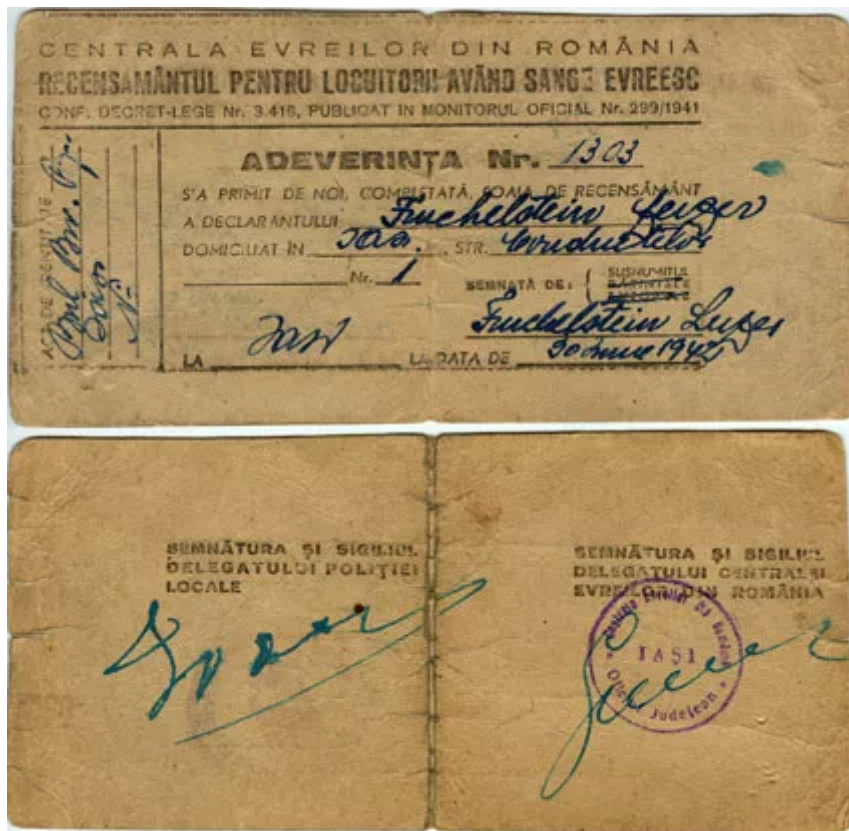 CENTRALA EVREILOR DIN ROMÂNIA
RECENSAMÂNTUL PENTRU LOCUITORII AVÂND SANGE EVREESC
CONF. DECRET-LEGE Nr. 3.416, PUBLICAT IN MONITORUL OFICIAL Nr. 299/1941
ACT DE IDENTITATE
ADEVERINȚA Nr. 1303
S'A PRIMIT DE NOI, COMPLETATĂ, FOAIA DE RECENSĂMÂNT
A DECLARANTULUI Fruchelstein Leizer
DOMICILIAT ÎN Iași, STR.
Nr. 1 SEMNATĂ DE: { SUSNUMITUL
Fruchelstein Leizer
LA Iași LA DATA DE 30 1942
SEMNĂTURA ȘI SIGILIUL
DELEGATULUI POLIȚIEI
LOCALE
SEMNĂTURA ȘI SIGILIUL
DELEGATULUI CENTRALEI
EVREILOR DIN ROMÂNIA
Centrala Evreilor din România
IASI
Oficiul Județean